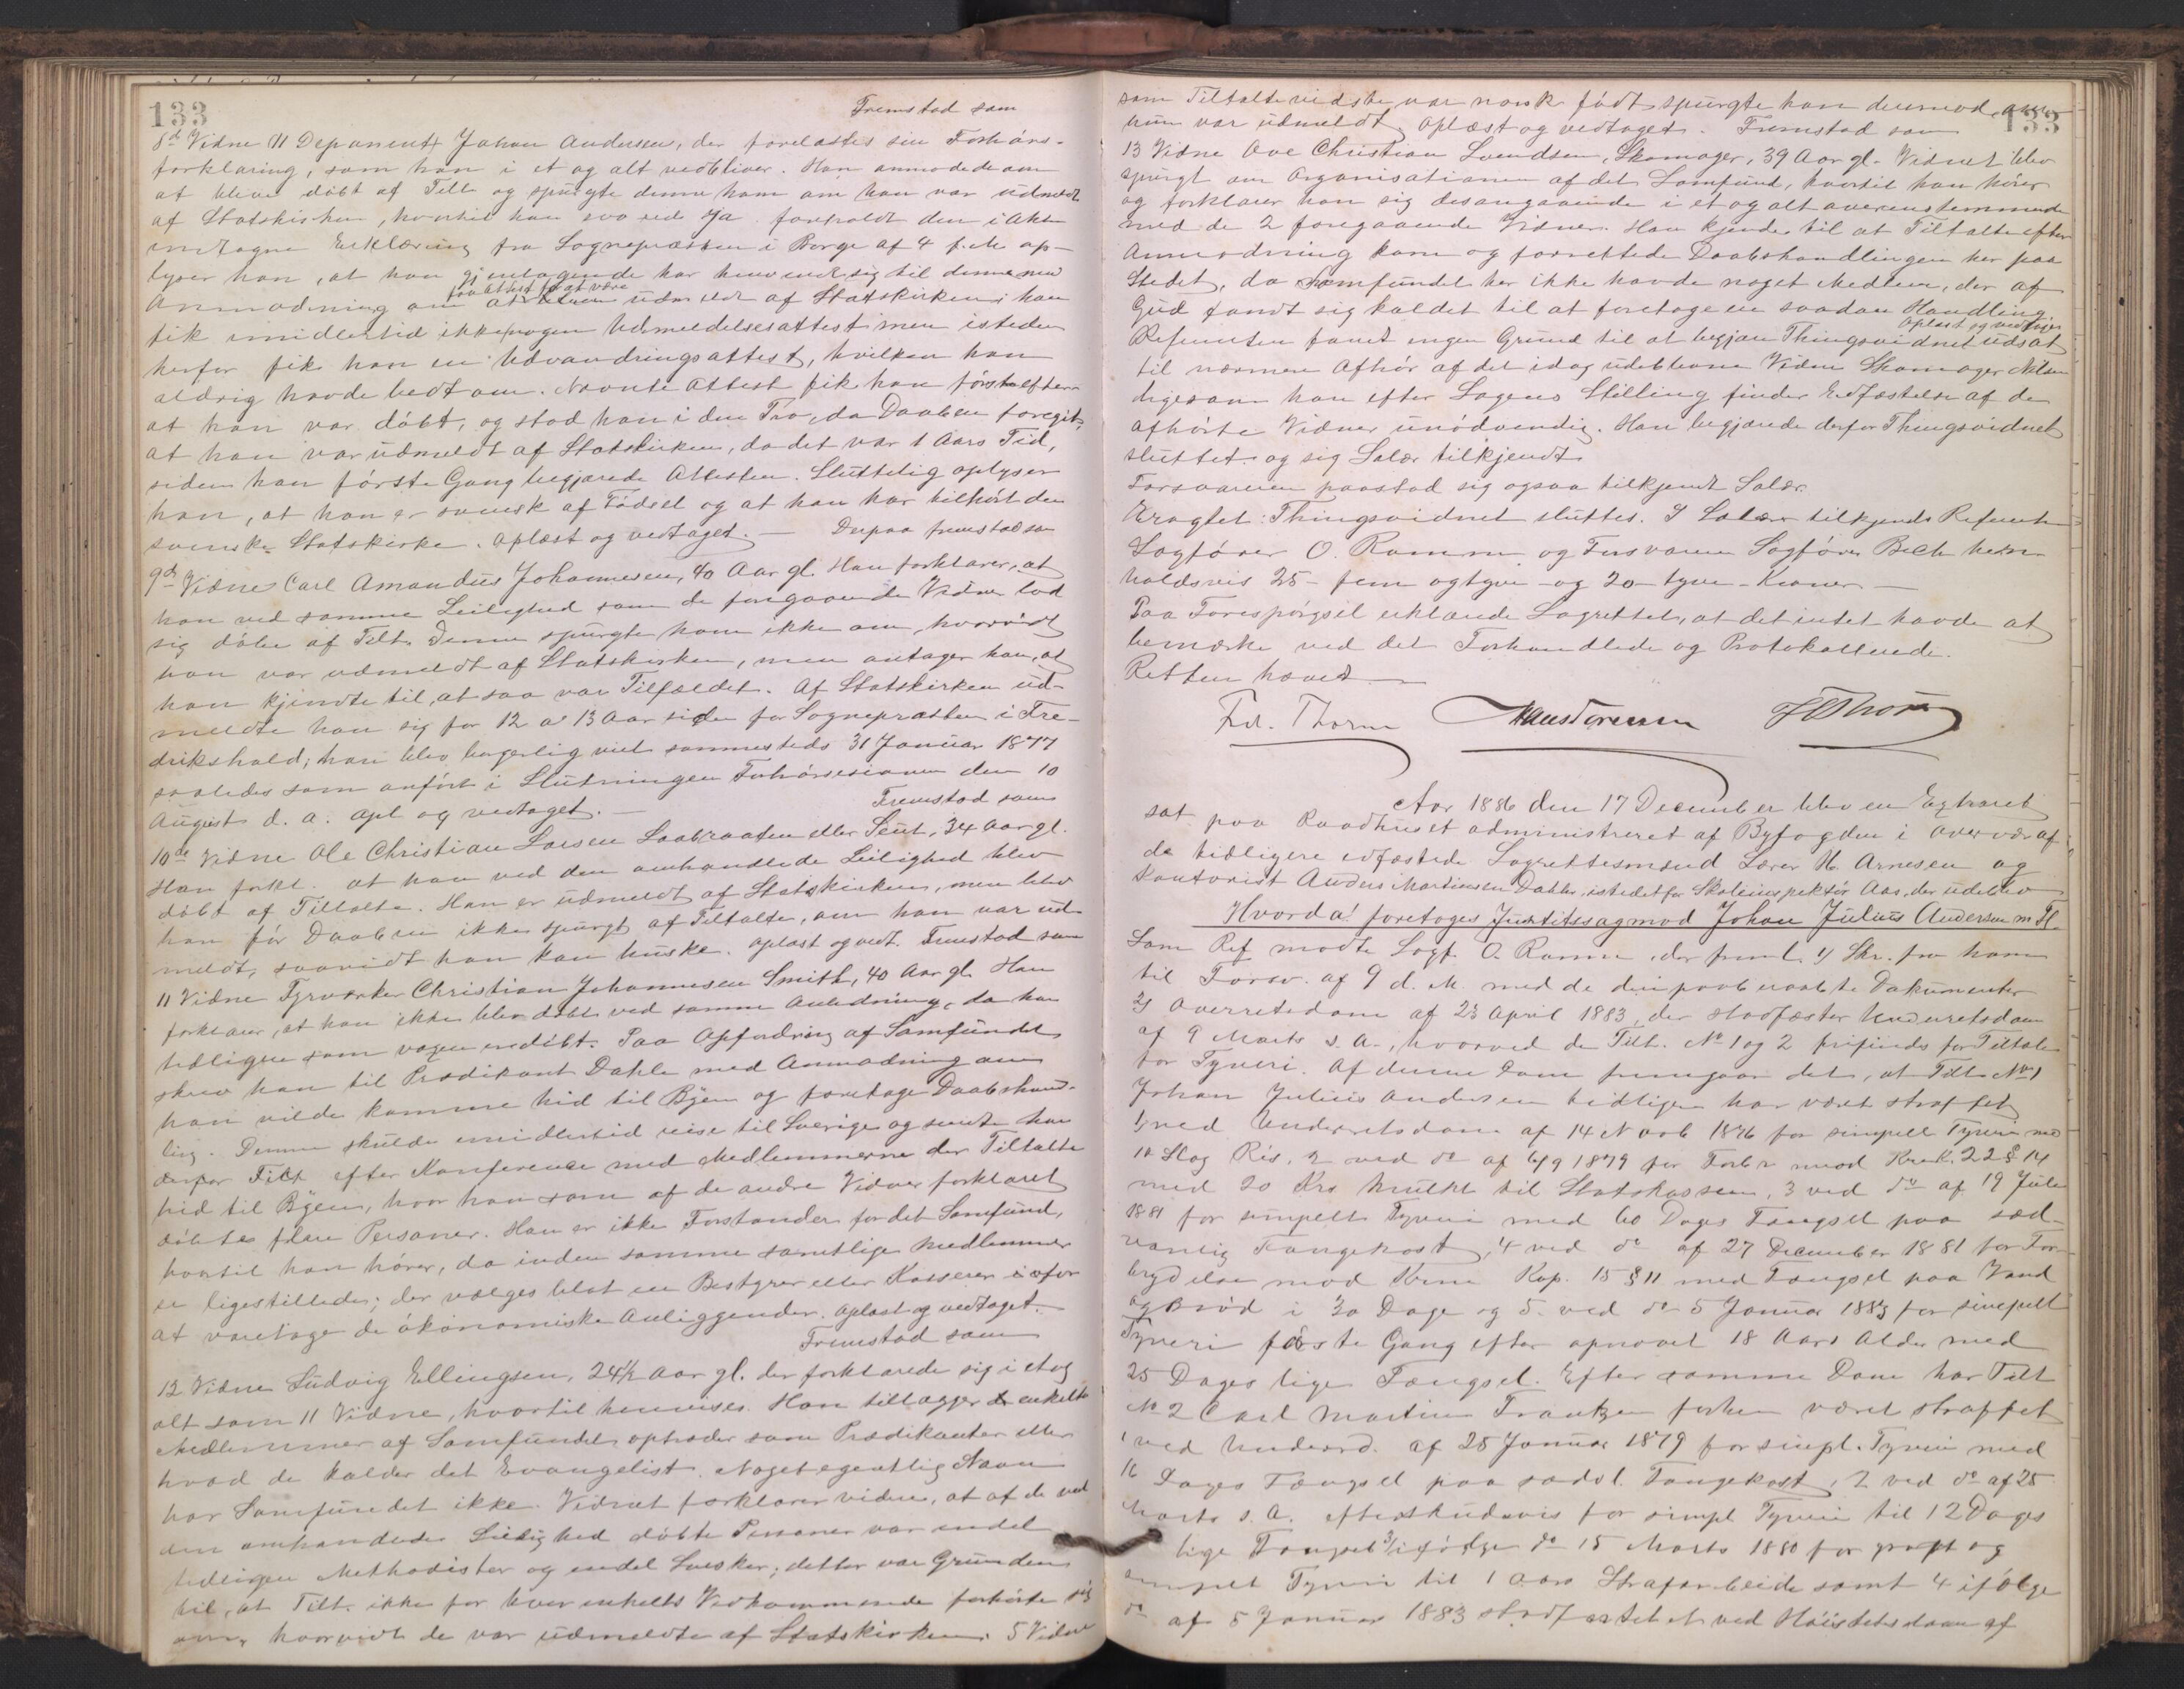 133
Fremstod som
8d Vidne (11 Deponent) Johan Andersen, der forelæstes sin Forhørs-
forklaring, som han i et og alt vedbliver. Han anmodede om
at blive døbt af Tilt og spurgte denne ham om han var udmeldt
af Statskirken, hvortil han svarede ja. foreholdt den i Akten
indtagne Erklæring fra Sognepræsten i Borge af 4 f. M. op-
lyser han, at han gjentagende har henvendt sig til denne med
faa Attest for at være
Anmodning om at udmeldt af Statskirken; han
fik imidlertid ikke nogen Udmeldelsesattest men isteden
herfor fik han en Udvandringsattest, hvilken han
aldrig havde bedt om. Nævnte Attest fik han først efter
at han var døbt, og stod han i den Tro, da Daaben foregik,
at han var udmeldt af Statskirken, da det var 1 Aars Tid,
siden han første Gang begjærede Attesten. Sluttelig oplyser
han, at han er svensk af Fødsel og at han har tilhørt den
svenske Statskirke. Oplæst og vedtaget. — Derpaa fremstod som
9de Vidne Carl Amandus Johannesen, 40 Aar gl. Han forklarer, at
han ved samme Leilighed som de foregaaende Vidner lod
sig døbe af Tilt. Denne spurgte ham ikke om, hvorvidt
han var udmeldt af Statskirken, men antager han, at
han kjendte til, at saa var Tilfældet. Af Statskirken ud-
meldte han sig for 12 a 13 Aar siden for Sognepræsten i Fre-
drikshald; han blev borgerlig viet sammesteds 31 Januar 1877
saaledes som anført i Slutningen Forhørssesionen den 10
August d. A. Opl og vedtaget. —
Fremstod som
10de Vidne Ole Christian Larsen eller Seut, 34 Aar gl.
Han forkl. at han ved den omhandlede Leilighed blev
døbt af Tiltalte. Han er udmeldt af Statskirken, men blev
han før Daaben ikke spurgt af Tiltalte, om han var ud-
meldt, saavidt han kan huske. Oplæst og vedt. Fremstod som
11 Vidne Fyrværker Christian Johannesen Smith, 40 Aar gl. Han
forklarer, at han ikke blev døbt ved samme Anledning, da han
tidligere som voxen er døbt. Paa Opfordring af Samfundet
skrev han til Prædikant Dahle med Anmodning om
han vilde komme hid til Byen og foretage Daabshand-
ling. Denne skulde imidlertid reise til Sverige og sendte han
derfor Tilt efter Konference med Medlemmerne der Tiltalte
hid til Byen, hvor han som af de andre Vidner forklaret
døbte flere Personer. Han er ikke Forstander for det Samfund,
hvortil han hører, da inden samme samtlige Medlemmer
er ligestillede; der vælges blot en Bestyrer eller Kasserer for
at varetage de økonomiske Anliggender. Oplæst og vedtaget.
Fremstod som
12 Vidne Ludvig Ellingsen, 24½ Aar gl. der forklarede sig i et og
alt som 11 Vidne, hvortil henvises. Han tillægger at enkelte
Medlemmer af Samfundet optræder som Prædikanter eller
hvad de kalder det Evangelist. Noget egentlig Navn
har Samfundet ikke. Vidnet forklarer videre, at af de ved
den omhandlede Leilighed døbte Personer var endel
tidligere Methodister og endel Svensker; dette var Grunden
til, at Tilt. ikke for hver enkelts Vedkommende forhørte sig
om, hvorvidt de var udmeldte af Statskirken. 5 Vidne
133
som Tiltalte vidste var norsk født spurgte han derimod om
hun var udmeldt. Oplæst og vedtaget. Fremstod som
13 Vidne Ove Christian Svendsen, Skomager, 39 Aar gl. Vidnet blev
spurgt om Organisationen af det Samfund, hvortil han hører
og forklarer han sig desangaaende i et og alt overensstemmende
med de 2 foregaaende Vidner. Han kjender til at Tiltalte efter
Anmodning kom og forrettede Daabshandlingen her paa
Stedet, da Samfundet her ikke havde noget Medlem, der af
Gud fandt sig kaldet til at foretage en saadan Handling.
Oplæst og vedtaget
Referenten fandt ingen Grund til at begjære Thingsvidnet udsat
til nærmere Afhør af det idag udeblevne Vidne Skomager Nilsen
ligesom han efter Sagens Stilling finder Edfæstelse af de
afhørte Vidner unødvendig. Han begjærede derfor Thingsvidnet
sluttet og sig Salær tilkjendt.
Forsvareren paastod sig ogsaa tilkjendt Salær.
Eragtet: Thingsvidnet sluttes. I Salær tilkjendes Referenten
Sagfører O. Ramm og Forsvareren Sagfører Bech hen-
holdsvis 25 – fem og tyve – og 20 – tyve – Kroner. —
Paa Forespørgsel erklærede Lagrettet, at det intet havde at
bemærke ved det Forhandlede og Protokollerede.
Retten hævet. —
Frd. Thorne
Aar 1886 den 17 December blev en Extraret
sat paa Raadhuset administreret af Byfogden i Overvær af
de tidligere edfæstede Lagrettesmænd Lærer H. Arnesen og
Kontorist Anders Martinsen Dahler, istedetfor Skoleinspektør Aas, der udeblev
Hvorda! foretoges Justitssag mod Johan Julius Andersen m Fl.
Som Ref mødte Sagf. O. Ramm, der freml. 1) Skr. fra ham
til Forsv. af 9 d. M. med de deri paaberaabte Dokumenter
2) Overretsdom af 23 April 1883, der stadfæster Underretsdom
af 9 Marts s. A., hvorved de Tilt. No 1 og 2 frifindes for Tiltale
for Tyveri. Af denne Dom fremgaar det, at Tilt No 1
Johan Julius Andersen tidligere har været straffet
1, ved Underretsdom af 14 Novb 1876 for simpelt Tyveri med
10 Slag Ris, 2 ved do af 6/9 1879 for Forbr mod Krl. K. 22 § 14
med 20 Krs Mulkt til Statskassen, 3 ved do af 19 Juli
1881 for simpelt Tyveri med 60 Dages Fængsel paa sæd-
vanlig Fangekost, 4 ved do af 27 December 1881 for For-
brydelse mod Krml Kap. 15 § 11 med Fængsel paa Vand
og Brød i 30 Dage og 5. ved do 5 Januar 1883 for simpelt
Tyveri første Gang efter opnaaet 18 Aars Alder med
25 Dages lige Fængsel. Efter samme Dom har Tilt
No 2 Carl Martin Frantzen forhen været straffet
1 ved Underrd. af 25 Januar 1879 for simpl. Tyveri med
16 Dages Fængsel paa sædvl. Fangekost, 2 ved do af 25
Marts s. A. efterskudsvis for simpl Tyveri til 12 Dages
lige Fængsel 3/ ifølge do 15 Marts 1880 for groft og
simpelt Tyveri til 1 Aars Strafarbeide samt 4 ifølge
do af 5 Januar 1883 stadfæstet ved Høiesteretsdom af